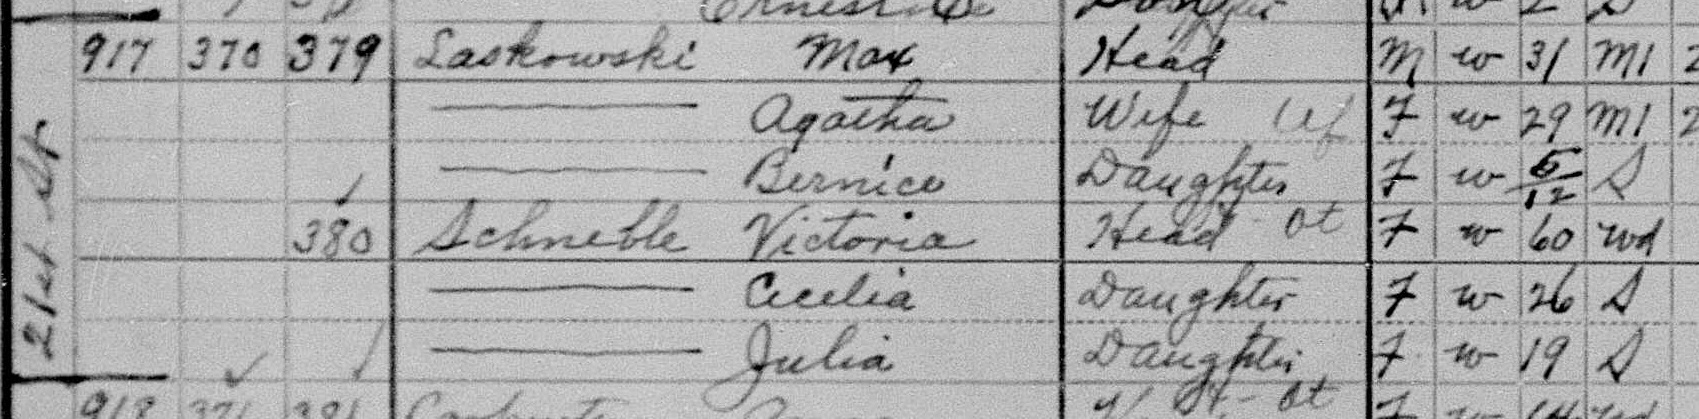 Ernest
917 370 379 Laskowski Max Head M w 31 M1 2
Agatha Wife F w 29 M1 2
Bernice Daughter F w 5/12 S
380 Schneble Victoria Head - Ot F w 60 Wd
Cecelia Daughter F w 26 S
Julia Daughter F w 19 S
918 371 381
21st St